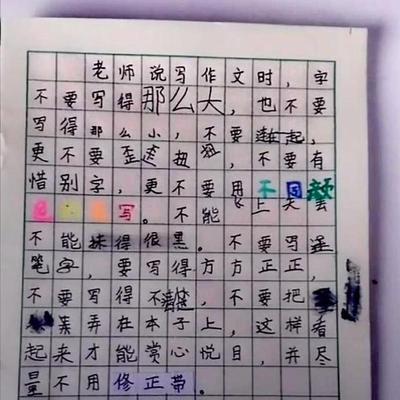 老师说写作文时,字
不要写得那么大,也不要
写得那么小,不要连起,
更不要歪歪扭扭,不要有
惜别字,更不要用不同颜
色 写。不能 上天
不能抹得很黑。不要写连
笔字,要写得方方正正,
不要写得不清楚,不要把
素弄在本子上,这样看
起来才能赏心悦目,并尽
量不用修正带。